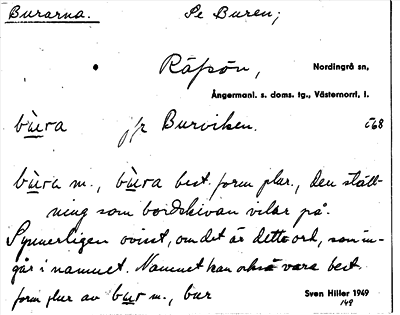 Burarna. Se Buren;
Råpön, Nordingrå sn,
Ångermanl. s. doms. tg., Västernorrl. l.
bùra jfr Burviken. c68
bùra m., bùra best. form plur., den ställ-
ning som bordskivan vilar på.
Synnerligen ovisst, om det är detta ord, som in-
går i namnet. Namnet kan också vara best.
form plur av bur m., bur
Sven Hiller 1949
149